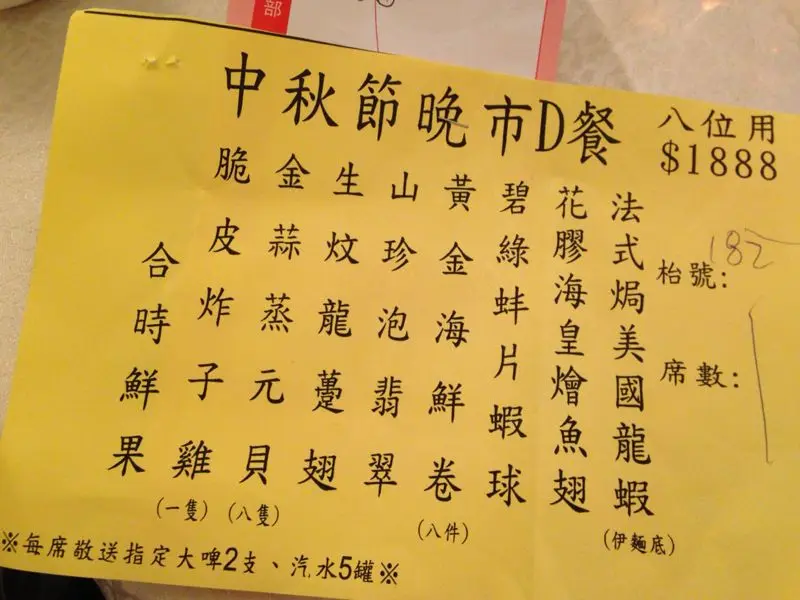 部
中秋節晚市D餐
八位用
$1888
枱號: 182
席數:
法式焗美國龍蝦
(伊麵底)
花膠海皇燴魚翅
碧綠蚌片蝦球
黃金海鮮卷
(八件)
山珍泡翡翠
生炆龍躉翅
金蒜蒸元貝
(八隻)
脆皮炸子雞
(一隻)
合時鮮果
※每席敬送指定大啤2支、汽水5罐※